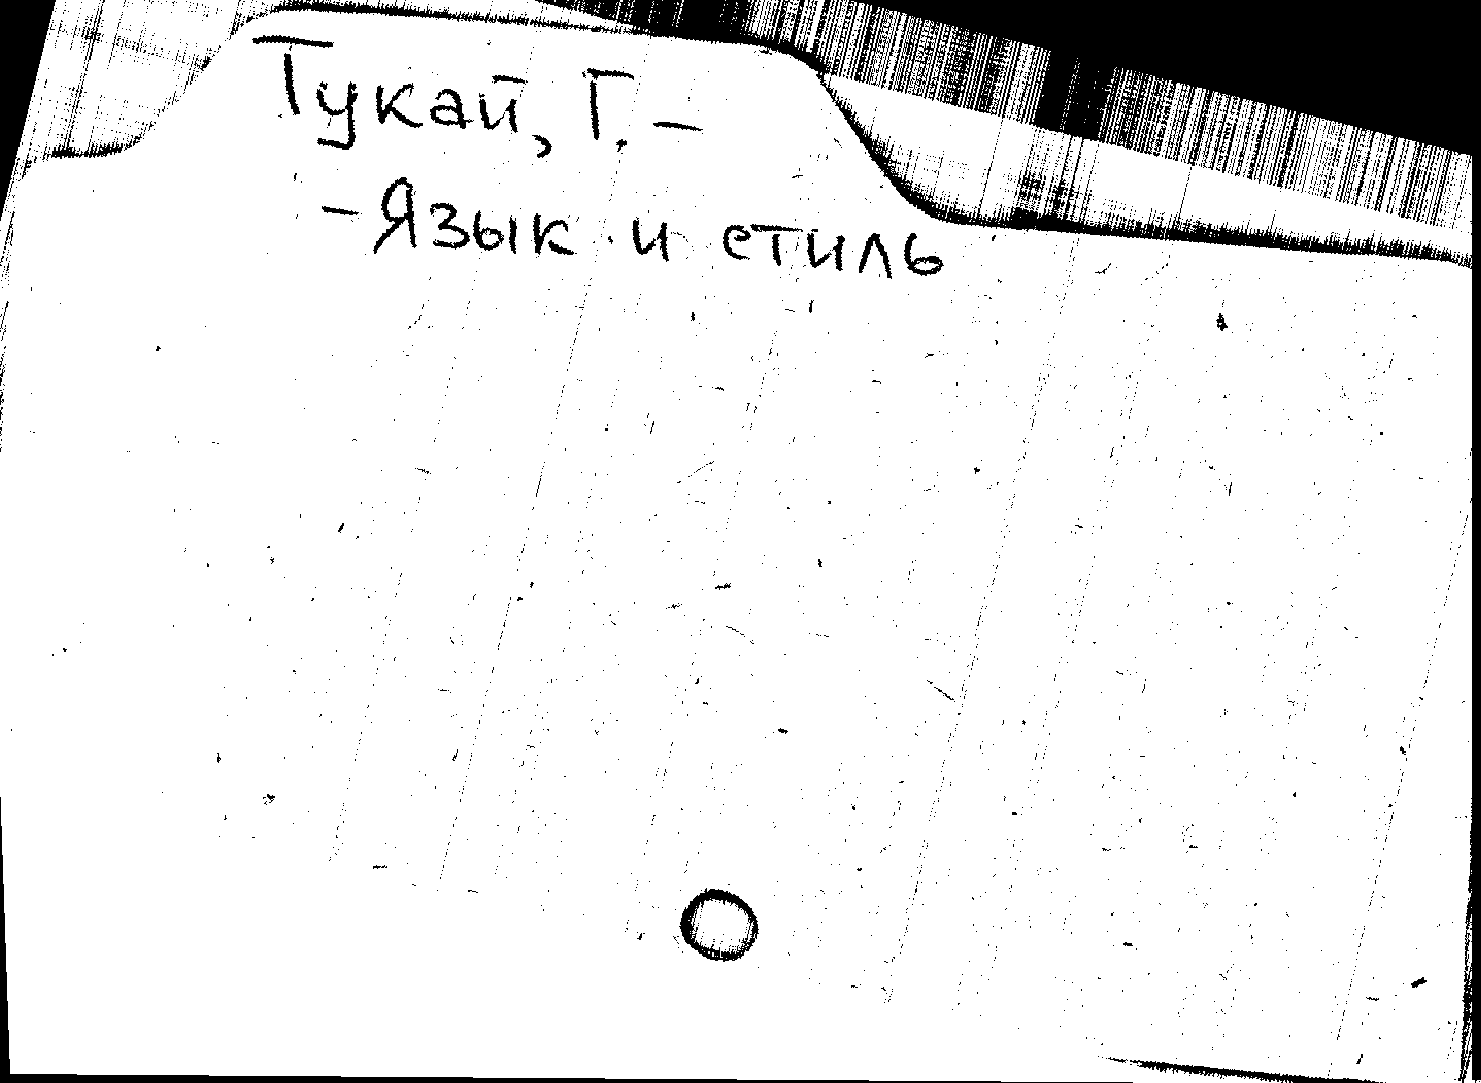 Тукай, Г. –
– Язык и стиль